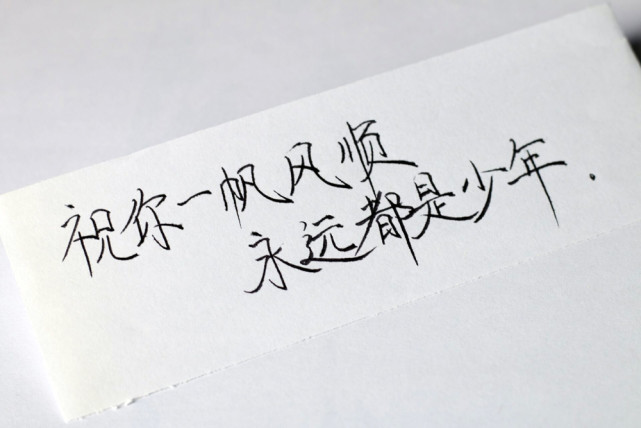 祝你一帆风顺
永远都是少年.